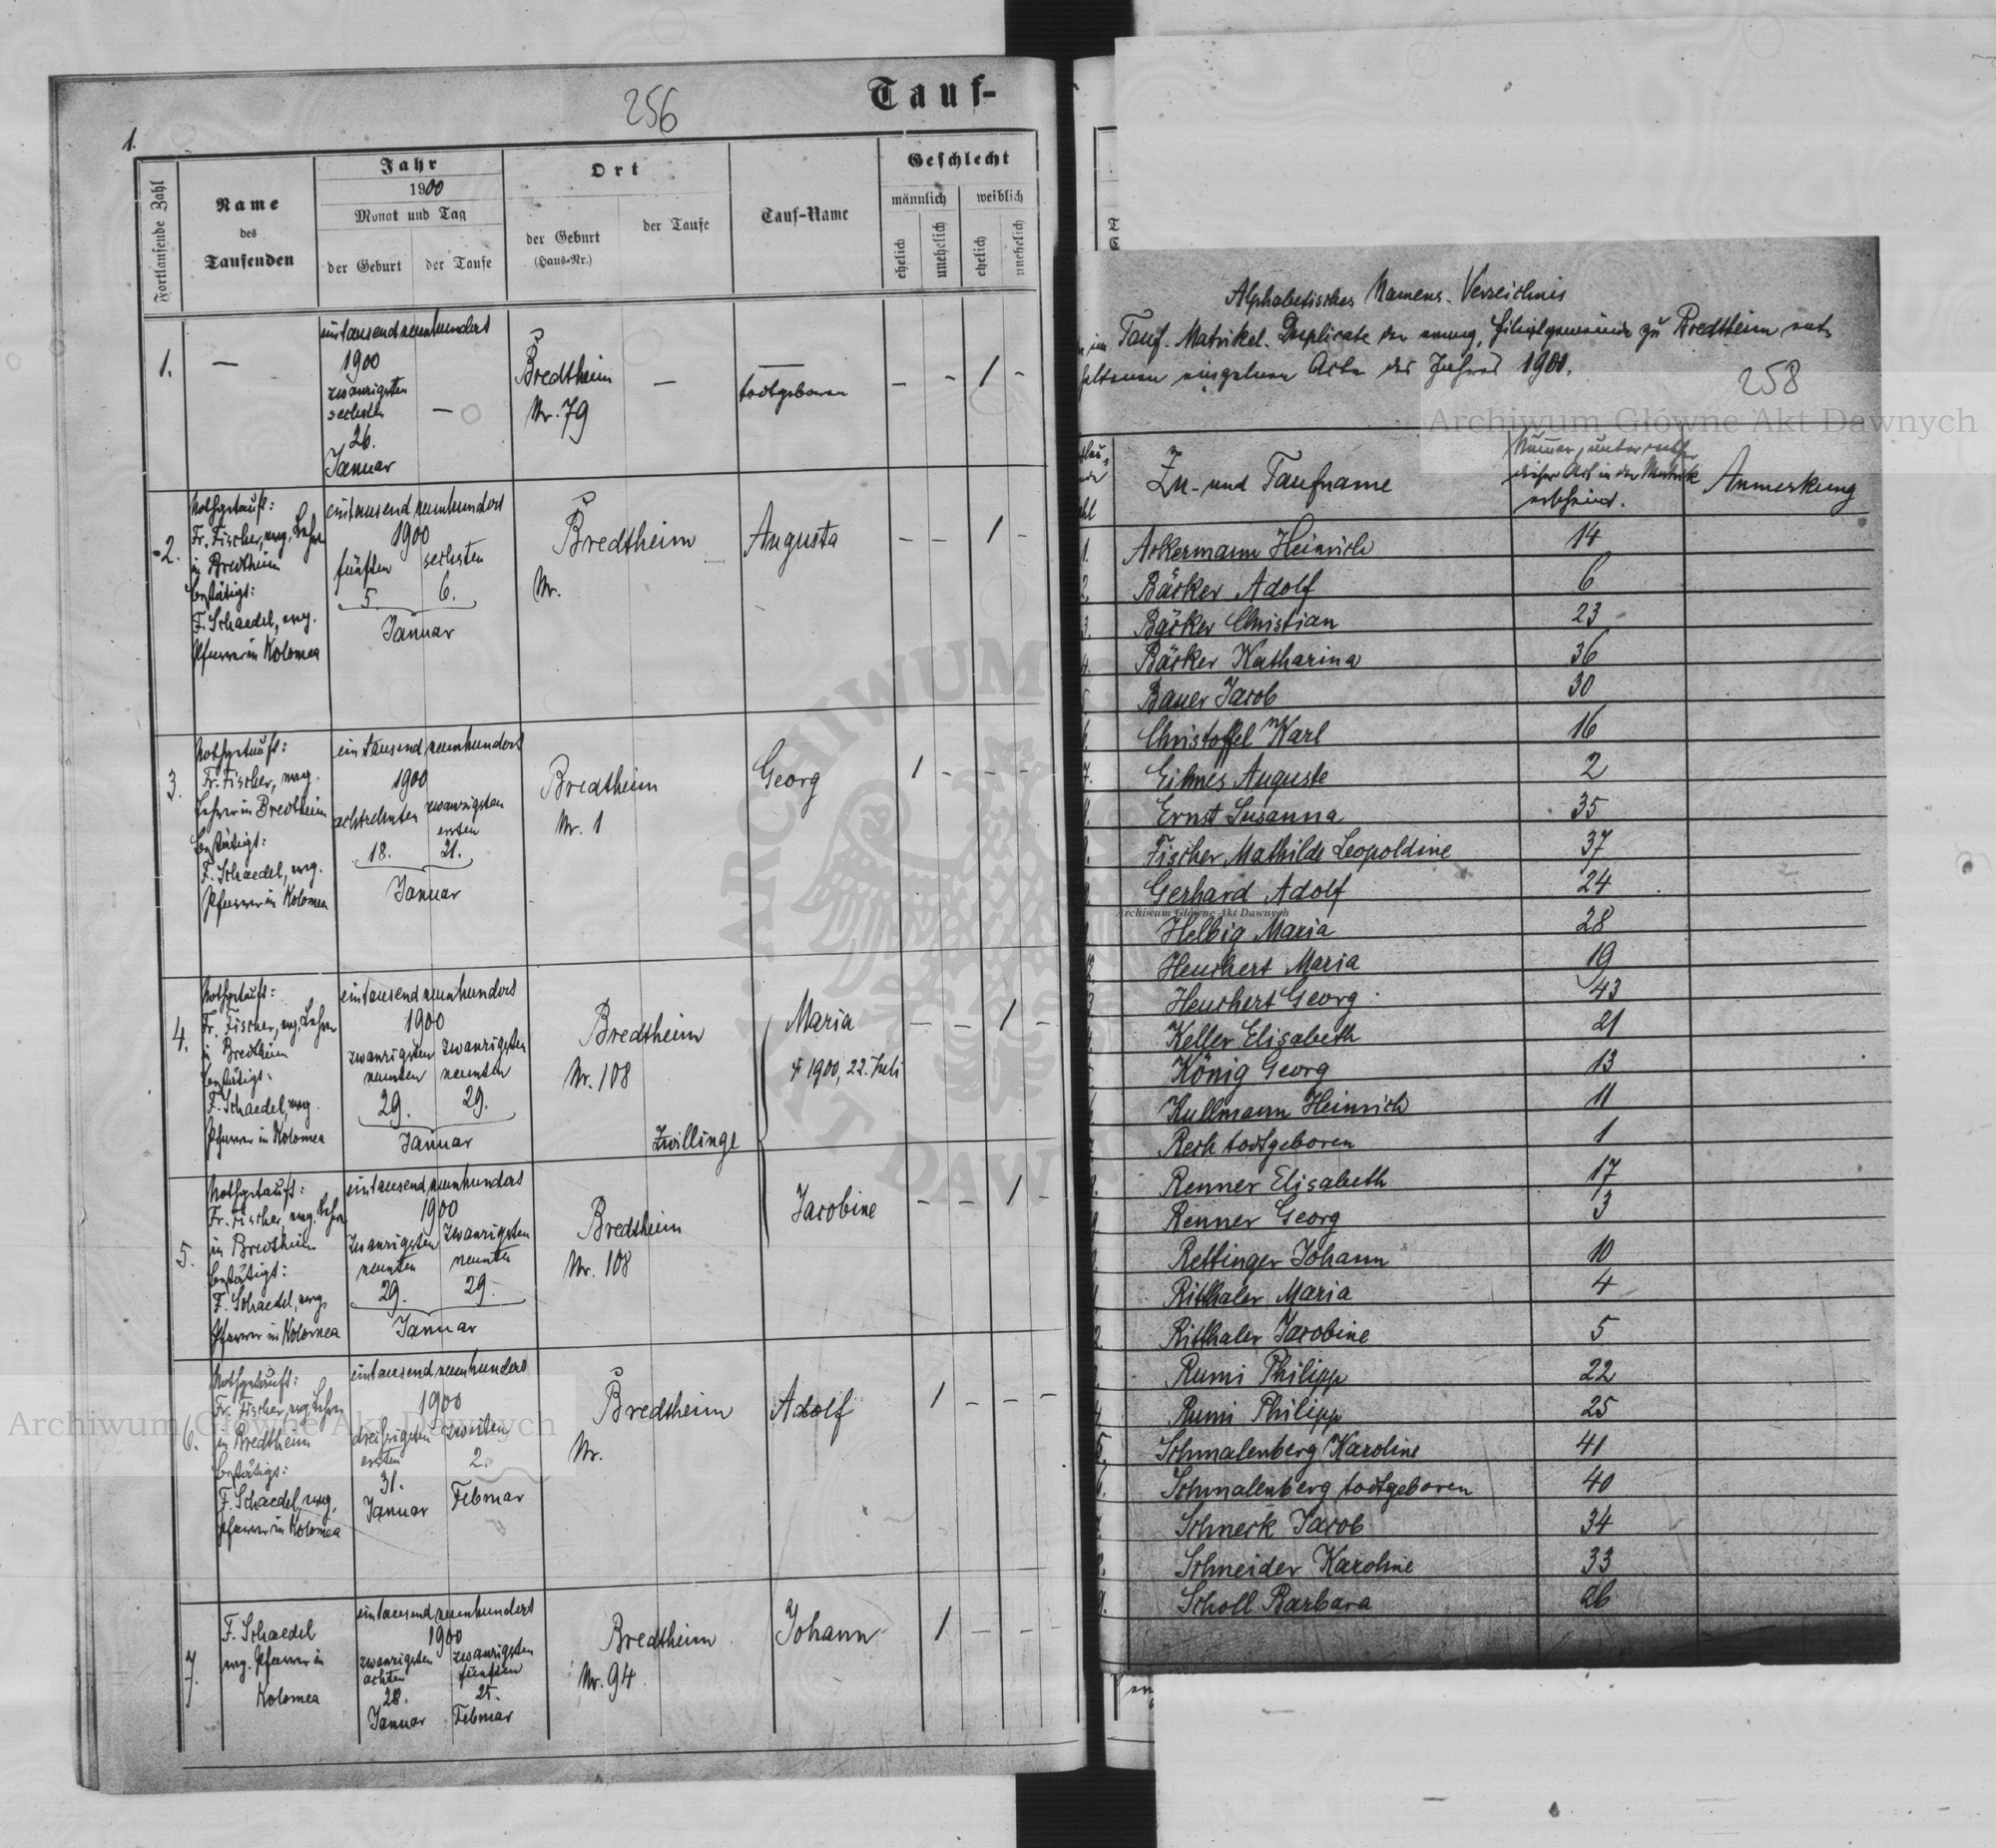 256
Tauf-
1.
Fortlaufende Zahl
Name
des
Taufenden
Jahr
1900
Monat und Tag
der Geburt
der Taufe
Ort
der Geburt
(Haus-Nr.)
der Taufe
Tauf-Name
Geschlecht
männlich
weiblich
ehelich
unehelich
ehelich
unehelich
1.
—
eintausendneunhundert
1900
zwanzigsten
sechsten
26.
Januar
—
Bredtheim
Nr. 79
—
—
todtgeboren
- - 1 -
2.
Nothgetauft:
Fr. Fischer, evg. Lehrer
in Bredtheim
bestätigt:
F. Schaedel, evg.
Pfarrer in Kolomea
eintausendneunhundert
1900
fünften
5
sechsten
6.
Januar
Bredtheim
Nr.
Augusta
- - 1 -
3.
Nothgetauft:
Fr. Fischer, evg.
Lehrer in Bredtheim
bestätigt:
F. Schaedel, evg.
Pfarrer in Kolomea
eintausendneunhundert
1900
achtzehnten
18.
zwanzigsten
ersten
21.
Januar
Bredtheim
Nr. 1
Georg
1 - - -
4.
Nothgetauft:
Fr. Fischer, evg. Lehrer
in Bredtheim
bestätigt:
F. Schaedel, evg.
Pfarrer in Kolomea
eintausendneunhundert
1900
zwanzigsten
neunten
29.
zwanzigsten
neunten
29.
Januar
Bredtheim
Nr. 108
Zwillinge
Maria
† 1900, 22. Juli
- - 1 -
5.
Nothgetauft:
Fr. Fischer, evg. Lehrer
in Bredtheim
bestätigt:
F. Schaedel, evg.
Pfarrer in Kolomea
eintausendneunhundert
1900
zwanzigsten
neunten
29.
zwanzigsten
neunten
29.
Januar
Bredtheim
Nr. 108
Jacobine
- - 1 -
6.
Nothgetauft:
Fr. Fischer, evg. Lehrer
in Bredtheim
bestätigt:
F. Schaedel, evg.
Pfarrer in Kolomea
eintausendneunhundert
1900
dreißigsten
ersten
31.
Januar
zweiten
2.
Februar
Bredtheim
Nr.
Adolf
1 - - -
7.
F. Schaedel
evg. Pfarrer in
Kolomea
eintausendneunhundert
1900
zwanzigsten
achten
28.
Januar
zwanzigsten
fünften
25.
Februar
Bredtheim
Nr. 94
Johann
1 - - -
Alphabetisches Namens-Verzeichnis
im Tauf-Matrikel-Duplicate der evang. Filialgemeinde zu Bredtheim ent-
haltenen einzelnen Acte des Jahres 1900.
258
Zu- und Taufname
Numer, unter welcher
dieser Act in der Matrik
erscheint.
Anmerkung
1. Ackermann Heinrich 14
2. Bäcker Adolf 6
3. Bäcker Christian 23
4. Bäcker Katharina 36
5 Bauer Jacob 30
Christoffel Karl 16
7. Eilmes Auguste 2
Ernst Susanna 35
Fischer Mathilde Leopoldine 37
Gerhard Adolf 24
Helbig Maria 28
Heuchert Maria 19
Heuchert Georg 43
Keller Elisabeth 21
König Georg 13
Kullmann Heinrich 11
Rech todtgeboren 1
Renner Elisabeth 17
Renner Georg 3
Rettinger Johann 10
Ritthaler Maria 4
Ritthaler Jacobine 5
Rumi Philipp 22
Rumi Philipp 25
Schmalenberg Karoline 41
Schmalenberg todtgeboren 40
Schneck Jacob 34
Schneider Karoline 33
Scholl Barbara 26
Archiwum Główne Akt Dawnych
Archiwum Główne Akt Dawnych
Archiwum Główne Akt Dawnych